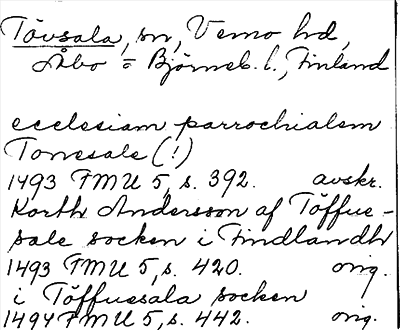 Tövsala, sn, Vemo hd,
Åbo = Björneb. l., Finland
ecclesiam parrochialem
Tovesale (!)
1493 FMU 5, s. 392. avskr.
Korth Andersson af Töffue-
sale socken i Findlandh
1493 FMU 5, s. 420. orig.
i Töffuesala socken
1494 FMU 5, s. 442. orig.